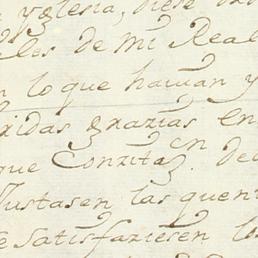 yglesia, diese
les de mi Real
lo que hauian y
ridas grazias en
que Conzita en
Justasen las quen
satisfaziesen lo